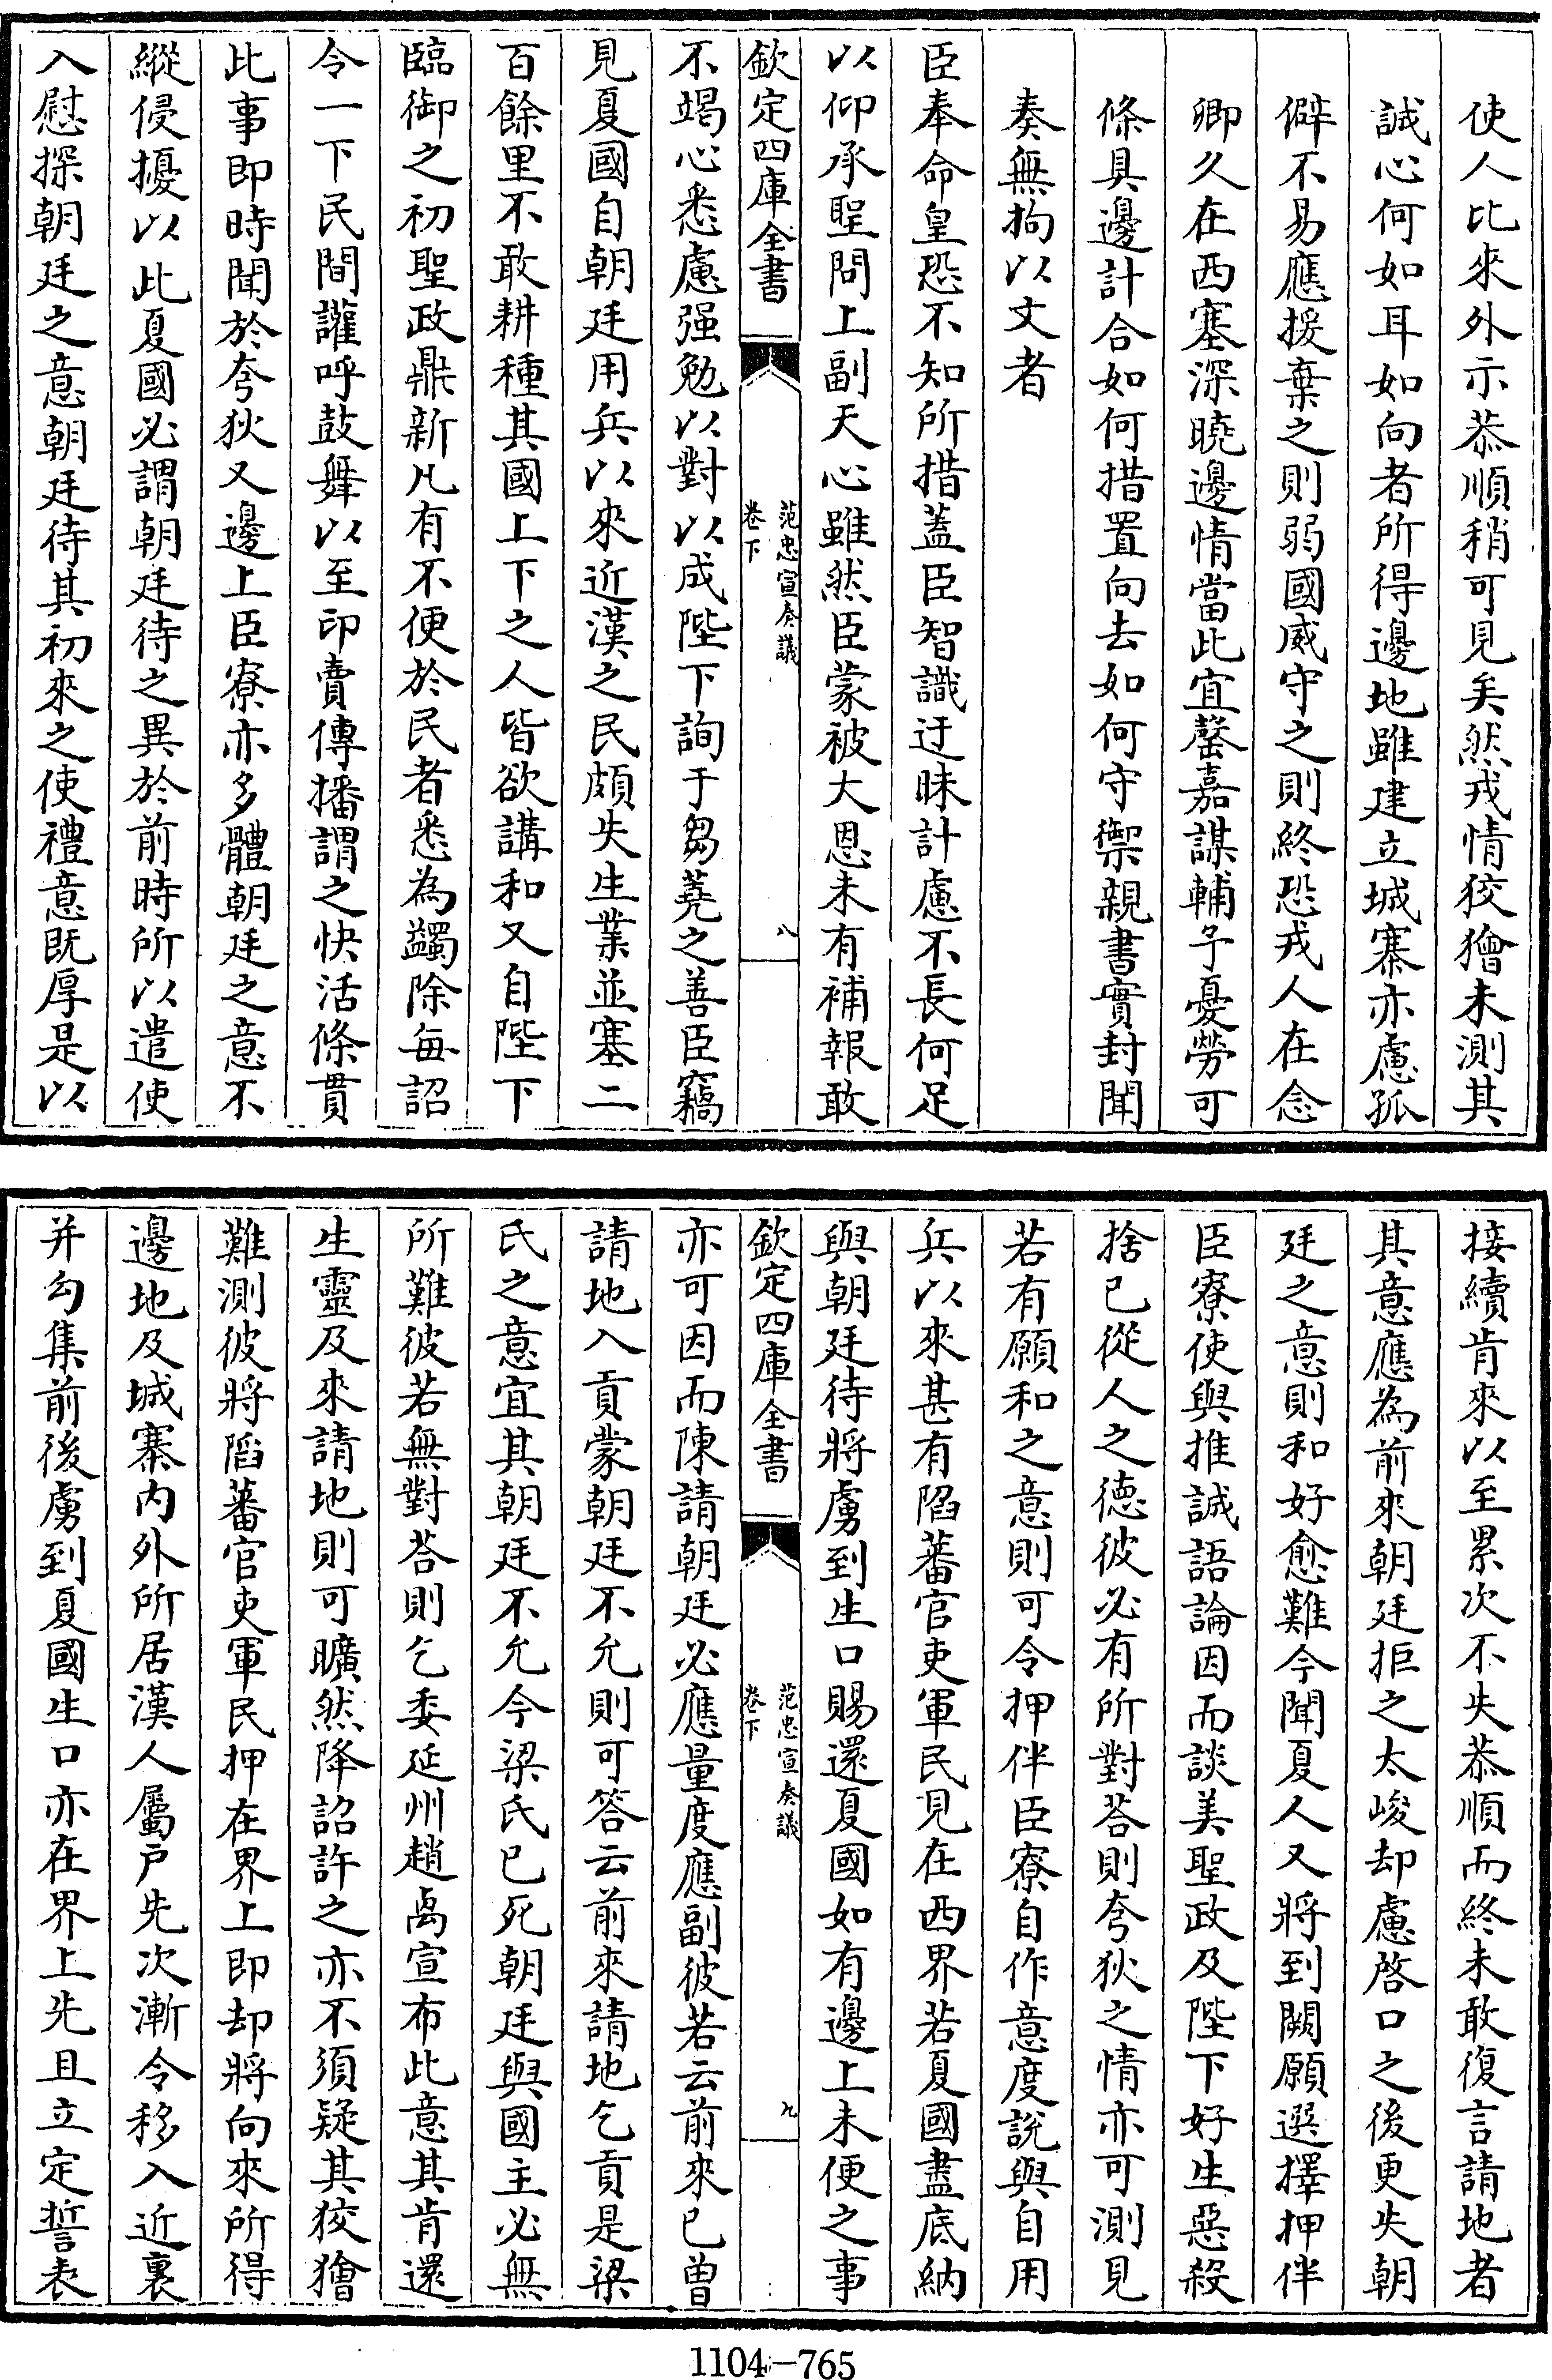 使人比來外示恭順稍可見矣然戎情狡獪未測其
誠心何如耳如向者所得邊地雖建立城寨亦慮孤
僻不易應援棄之則弱國威守之則終恐戎人在念
卿久在西塞深曉邊情當此宜罄嘉謀輔予憂勞可
條具邊計合如何措置向去如何守禦親書實封聞
奏無拘以文者
臣奉命皇恐不知所措蓋臣智識迂昧計慮不長何足
以仰承聖問上副天心雖然臣蒙被大恩未有補報敢
欽定四庫全書
范忠宣奏議
卷下
八
不竭心悉慮强勉以對以成陛下詢于芻蕘之善臣竊
見夏國自朝廷用兵以來近漢之民頗失生業並塞二
百餘里不敢耕種其國上下之人皆欲講和又自陛下
臨御之初聖政鼎新凡有不便於民者悉為蠲除每詔
令一下民間讙呼鼓舞以至印賣傳播謂之快活條貫
此事即時聞於夸狄又邊上臣寮亦多體朝廷之意不
縱侵擾以此夏國必謂朝廷待之異於前時所以遣使
入慰探朝廷之意朝廷待其初來之使禮意既厚是以
接續肯來以至累次不失恭順而終未敢復言請地者
其意應為前來朝廷拒之太峻却慮啓口之後更失朝
廷之意則和好愈難今聞夏人又將到闕願選擇押伴
臣寮使與推誠語論因而談美聖政及陛下好生惡殺
捨已從人之德彼必有所對荅則夸狄之情亦可測見
若有願和之意則可令押伴臣寮自作意度說與自用
兵以來甚有陷蕃官吏軍民見在西界若夏國盡底納
與朝廷待將虜到生口賜還夏國如有邊上未便之事
欽定四庫全書
范忠宣奏議
卷下
九
亦可因而陳請朝廷必應量度應副彼若云前來已曾
請地入貢蒙朝廷不允則可答云前來請地乞貢是梁
氏之意宜其朝廷不允今梁氏已死朝廷與國主必無
所難彼若無對荅則乞委延州趙卨宣布此意其肯還
生靈及來請地則可曠然降詔許之亦不須疑其狡獪
難測彼將陷蕃官吏軍民押在界上即却將向來所得
邊地及城寨内外所居漢人屬戶先次漸令移入近裏
并勾集前後虜到夏國生口亦在界上先且立定誓表
1104-765